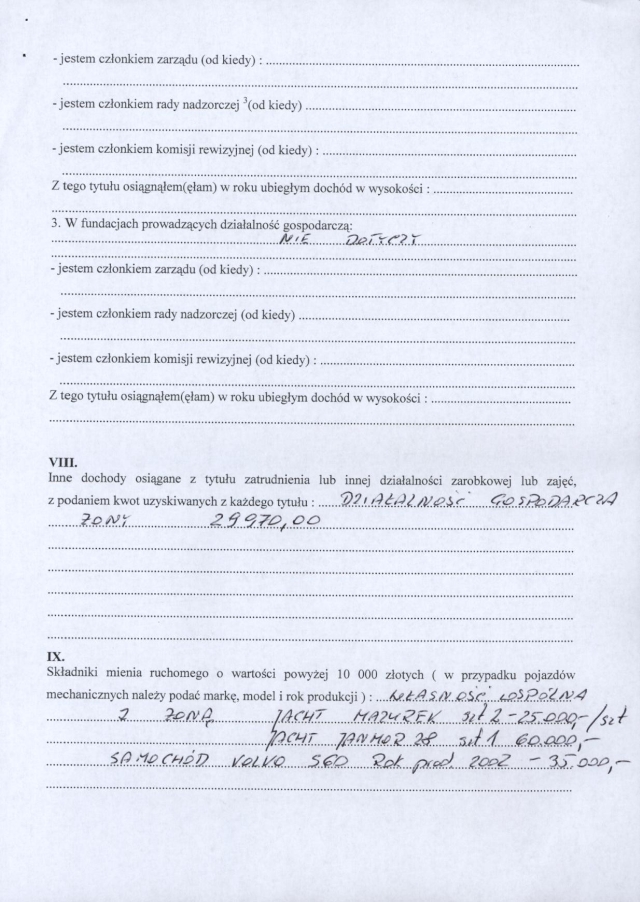 - jestem członkiem zarządu (od kiedy) : ................................................................
................................................................
- jestem członkiem rady nadzorczej ³(od kiedy) ................................................................
................................................................
- jestem członkiem komisji rewizyjnej (od kiedy) : ................................................................
................................................................
Z tego tytułu osiągnąłem(ęłam) w roku ubiegłym dochód w wysokości : ................................
................................................................
3. W fundacjach prowadzących działalność gospodarczą:
NIE DOTYCZY
................................................................
- jestem członkiem zarządu (od kiedy) : ................................................................
................................................................
- jestem członkiem rady nadzorczej (od kiedy) ................................................................
................................................................
- jestem członkiem komisji rewizyjnej (od kiedy) : ................................................................
................................................................
Z tego tytułu osiągnąłem(ęłam) w roku ubiegłym dochód w wysokości : ................................
................................................................
VIII.
Inne dochody osiągane z tytułu zatrudnienia lub innej działalności zarobkowej lub zajęć,
z podaniem kwot uzyskiwanych z każdego tytułu : DZIAŁALNOŚĆ GOSPODARCZA
ŻONY 29970,00
................................................................
................................................................
................................................................
................................................................
................................................................
IX.
Składniki mienia ruchomego o wartości powyżej 10 000 złotych ( w przypadku pojazdów
mechanicznych należy podać markę, model i rok produkcji ) : WŁASNOŚĆ WSPÓLNA
Z ŻONĄ JACHT MAZUREK szt 2 - 25.000,- /szt
JACHT JANMOR 28 szt 1 60.000,-
SAMOCHÓD VOLVO S60 Rok prod. 2002 - 35.000,-
................................................................